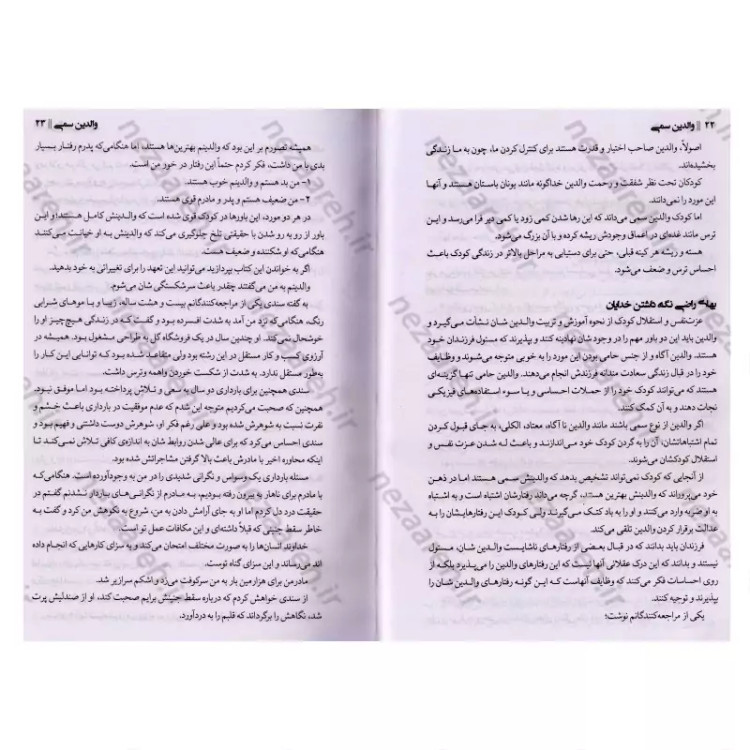 ۲۲ || والدین سمی
اصولاً، والدین صاحب اختیار و قدرت هستند برای کنترل کردن ما، چون به ما زندگی
بخشیده‌اند.
کودکان تحت نظر شفقت و رحمت والدین خداگونه مانند یونان باستان هستند و آنها
این مورد را نمی‌دانند.
اما کودک والدین سمی می‌داند که این رها شدن کمی زود یا کمی دیر فرا می‌رسد و این
ترس مانند غده‌ای در اعماق وجودش ریشه کرده و با آن بزرگ می‌شود.
هسته و ریشه هر کینه قبلی، حتی برای دستیابی به مراحل بالاتر در زندگی کودک باعث
احساس ترس و ضعف می‌شود.
بهای راضی نگه داشتن خدایان
عزت‌نفس و استقلال کودک از نحوه آموزش و تربیت والدین شان نشأت می‌گیرد و
والدین باید این دو باور مهم را در وجود شان نهادینه کنند و بپذیرند که مسئول فرزندان خود
هستند. والدین آگاه و از جنس حامی بودن این مورد را به خوبی متوجه می‌شوند و وظایف
خود را در قبال زندگی سعادت مندانه فرزندش انجام می‌دهند. والدین حامی تنها گزینه‌ای
هستند که می‌توانند کودک خود را از حملات احساسی و یا سوء استفاده‌های فیزیکی
نجات دهند و به آن کمک کنند.
اگر والدین از نوع سمی باشند مانند والدین نا آگاه، معتاد، الکلی، به جای قبول کردن
تمام اشتباهاتشان، آن را به گردن کودک خود می‌اندازند و باعث له شدن عزت نفس و
استقلال کودکشان می‌شوند.
از آنجایی که کودک نمی‌تواند تشخیص بدهد که والدینش سمی هستند اما در ذهن
خود می‌پروراند که والدینش بهترین هستند، گرچه می‌داند رفتارشان اشتباه است و به اشتباه
به او ضربه وارد می‌کنند و او را به باد کتک می‌گیرند ولی کودک این رفتارهایشان را به
عدالت برقرار کردن والدین تلقی می‌کند.
فرزندان باید بدانند که در قبال بعضی از رفتارهای ناشایست والدین شان، مسئول
نیستند و بدانند که این درک عقلانی آنها نیست که این رفتارهای والدین را می‌پذیرد بلکه از
روی احساسات فکر می‌کنند که وظایف آنهاست که این گونه رفتارهای والدین شان را
بپذیرند و توجیه کنند.
یکی از مراجعه‌کنندگانم نوشت؛
والدین سمی || ۲۳
همیشه تصورم بر این بود که والدینم بهترین‌ها هستند، اما هنگامی‌که پدرم رفتار بسیار
بدی با من داشت، فکر کردم حتماً این رفتار در خور من است.
۱- من بد هستم و والدینم خوب هستند.
۲- من ضعیف هستم و پدر و مادرم قوی هستند.
در هر دو مورد، این باورها در کودک قوی شده است که والدینش کامل هستند؛ و این
باور از رو به رو شدن با حقیقتی تلخ جلوگیری می‌کند که والدینش به او خیانت می‌کنند
هنگامی‌که او شکننده و ضعیف هست.
اگر به خواندن این کتاب بپردازید می‌توانید این تعهد را برای تغییراتی به خود بدهید.
والدینم به من می‌گفتند چقدر باعث سرشکستگی شان می‌شوم.
به گفته سندی یکی از مراجعه‌کنندگانم بیست و هشت ساله، زیبا و با موهای شرابی
رنگ، هنگامی‌که نزد من آمد به شدت افسرده بود و گفت که در زندگی هیچ‌چیز او را
خوشحال نمی‌کند. او چندین سال در یک فروشگاه گل به طراحی مشغول بود. همیشه در
آرزوی کسب و کار مستقل در این رشته بود ولی متقاعد شده بود که توانایی این کار را
به‌طور مستقل ندارد. به شدت از شکست خوردن واهمه و ترس داشت.
سندی همچنین برای بارداری دو سال به سعی و تلاش پرداخته بود اما موفق نبود.
همچنین که صحبت می‌کردیم متوجه این شدم که عدم موفقیت در بارداری باعث خشم و
نفرت نسبت به شوهرش شده بود و علی رغم فکر او، شوهرش دوست داشتنی و فهیم بود و
سندی احساس می‌کرد که برای عالی شدن روابط شان به اندازه‌ی کافی تلاش نمی‌کند تا
اینکه محاوره اخیر با مادرش باعث بالا گرفتن مشاجراتش شده بود.
مسئله بارداری یک وسواس و نگرانی شدیدی را در من به وجودآورده است. هنگامی‌که
با مادرم برای ناهار به بیرون رفته بودیم، به مادرم از نگرانی‌های باردار نشدنم گفتم در
حقیقت درد دل کردم اما او به جای آرامش دادن به من، شروع به نکوهش من کرد و گفت به
خاطر سقط جنینی که قبلاً داشته‌ای و این مکافات عمل تو است.
خداوند انسان‌ها را به صورت مختلف امتحان می‌کند و به سزای کارهایی که انجام داده
اند می‌رساند و این سزای گناه توست.
مادرمن برای هزارمین بار به من سرکوفت می‌زد و اشکم سرازیر شد.
از سندی خواهش کردم که درباره سقط جنینش برایم صحبت کند، او از صندلیش پرت
شد، نگاهش را برگرداند که قلبم را به دردآورد.
nezaareh.ir